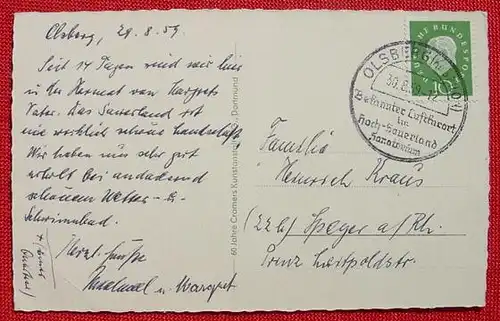 Olsberg, 29.8.59
Seit 14 Tagen sind wir hier
in der Heimat von Margrets
Vater. Das Sauerland ist
eine wirklich schöne Landschaft.
Wir haben uns sehr gut
erholt bei andauernd
schönem Wetter u.
Schwimmbad.
Herzl. Grüße
u. Margret
60 Jahre Cramers Kunstanstalt, Dortmund
DEUTSCHE BUNDESPOST
10
OLSBERG
30.8.59-12
Bekannter Luftkurort
im
Hoch-Sauerland
Familie
Heinrich Kraus
(22b) Speyer a/Rh.
Prinz Luitpoldstr.